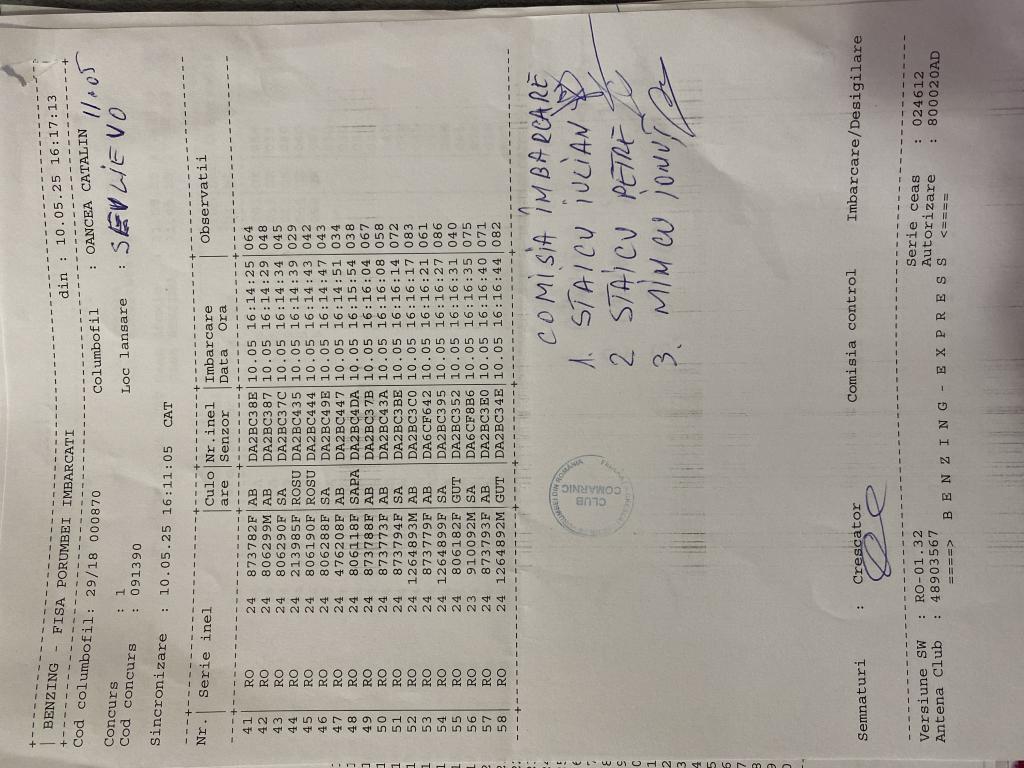 BENZING - FISA PORUMBEI IMBARCATI din : 10.05.25 16:17:13
Cod columbofil: 29/18 000870 Columbofil : OANCEA CATALIN 11.05
Concurs : 1 Loc lansare : SEVLIEVO
Cod concurs : 091390
Sincronizare : 10.05.25 16:11:05 CAT
Nr. | Serie inel |Culo|Nr.inel |Imbarcare | Observatii
|are |Senzor |Data Ora |
41 | RO 24 873782F|AB |DA2BC38E|10.05 16:14:25|064
42 | RO 24 806299M|AB |DA2BC387|10.05 16:14:29|048
43 | RO 24 806290F|SA |DA2BC37C|10.05 16:14:34|045
44 | RO 24 213985F|ROSU|DA2BC435|10.05 16:14:39|029
45 | RO 24 806190F|ROSU|DA2BC444|10.05 16:14:43|042
46 | RO 24 806288F|SA |DA2BC49E|10.05 16:14:47|043
47 | RO 24 476208F|AB |DA2BC447|10.05 16:14:51|034
48 | RO 24 806118F|SAPA|DA2BC4DA|10.05 16:15:54|038
49 | RO 24 873788F|AB |DA2BC37B|10.05 16:16:04|067
50 | RO 24 873773F|AB |DA2BC43A|10.05 16:16:08|058
51 | RO 24 873794F|SA |DA2BC3BE|10.05 16:16:14|072
52 | RO 24 1264893M|AB |DA2BC3C0|10.05 16:16:17|083
53 | RO 24 873779F|AB |DA6CF642|10.05 16:16:21|061
54 | RO 24 1264899F|SA |DA2BC395|10.05 16:16:27|086
55 | RO 24 806182F|GUT |DA2BC352|10.05 16:16:31|040
56 | RO 23 910092M|SA |DA6CF8B6|10.05 16:16:35|075
57 | RO 24 873793F|AB |DA2BC3E0|10.05 16:16:40|071
58 | RO 24 1264892M|GUT |DA2BC34E|10.05 16:16:44|082
COMISIA ÎMBARCARE
1. STAICU IULIAN
2 STAICU PETRE
3. MIMCU IONUȚ
CLUB
COMARNIC
DIN ROMANIA
Semnaturi : Crescator Comisia control Imbarcare/Desigilare
Versiune SW : RO-01.32 Serie ceas : 024612
Antena Club : 48903567 Autorizare : 800020AD
====> B E N Z I N G - E X P R E S S <====